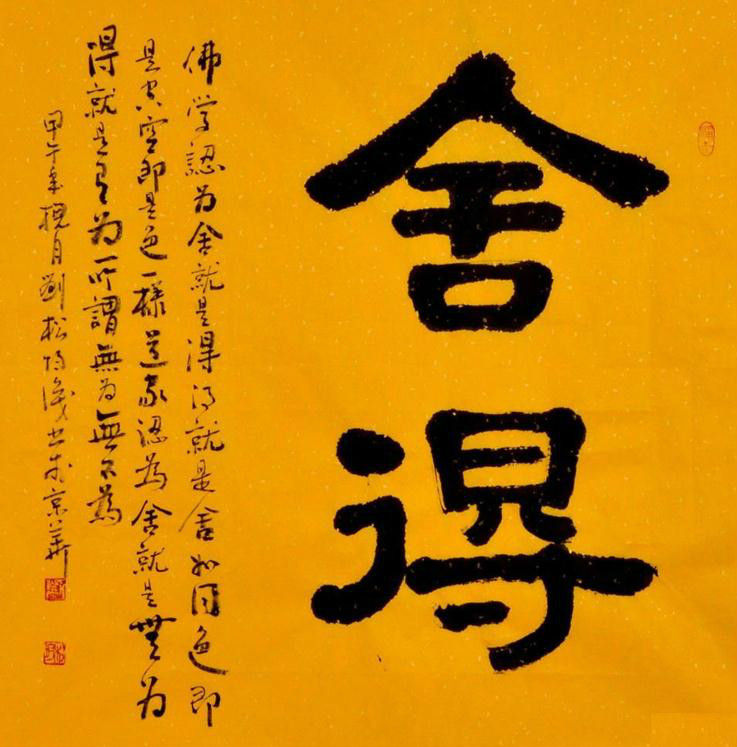 舍得
佛学認为舍就是得得就是舍如同色即
是空空即是色一樣道家認為舍就是無为
得就是有为所謂無为無不為
甲午年月劉松书於京華